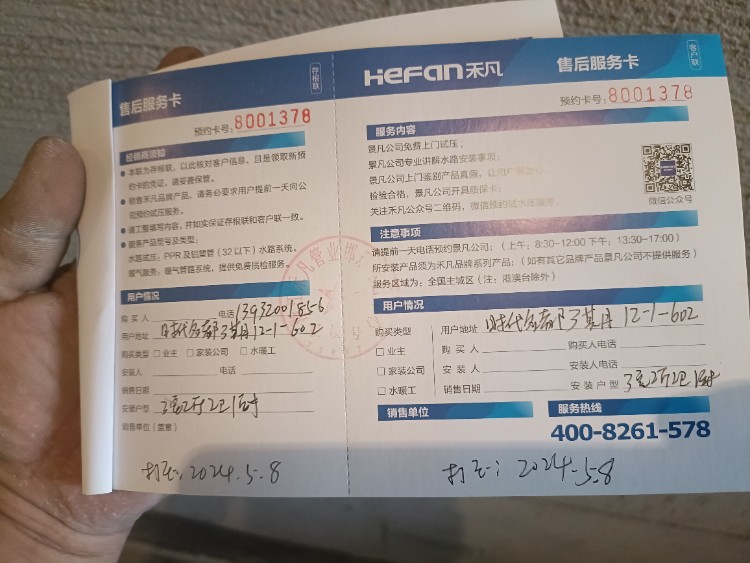 存根联
售后服务卡
预约卡号:8001378
经销商须知
本联为存根联,以此核对客户信息,且是领取新预
约卡的凭证,请妥善保管。
销售禾凡品牌产品,请务必要求用户提前一天向公
司预约试压服务。
请工整填写内容,并如实保证存根联和客户联一致。
服务产品型号及类型:
水路试压:PPR及铝塑管(32以下)水路系统。
暖气服务:暖气管路系统,提供免费质检服务。
用户情况
购买人 电话 13932001856
用户地址 时代名都3期 12-1-602
购买类型 □业主 □家装公司 □水暖工
安装人 电话
销售日期
安装户型 3室2厅2卫1厨
销售单位(盖章)
打压:2024.5.8
客户联
HeFan禾凡
售后服务卡
预约卡号:8001378
服务内容
景凡公司免费上门试压,
景凡公司专业讲解水路安装事项;
景凡公司上门鉴别产品真假,
检验合格,景凡公司开具质保卡;
关注禾凡公众号二维码,微信预约试水压服务。
微信公众号
注意事项
请提前一天电话预约景凡公司;(上午:8:30-12:00 下午:13:30-17:00)
所安装产品须为禾凡品牌系列产品;(如有其它品牌产品景凡公司不提供服务)
服务区域为:全国主城区(注:港澳台除外)
用户情况
购买类型 用户地址 时代名都3期 12-1-602
□业主 购买人 购买人电话
□家装公司 安装人 安装人电话
□水暖工 销售日期 安装户型 3室2厅2卫1厨
销售单位
服务热线
400-8261-578
打压:2024.5.8